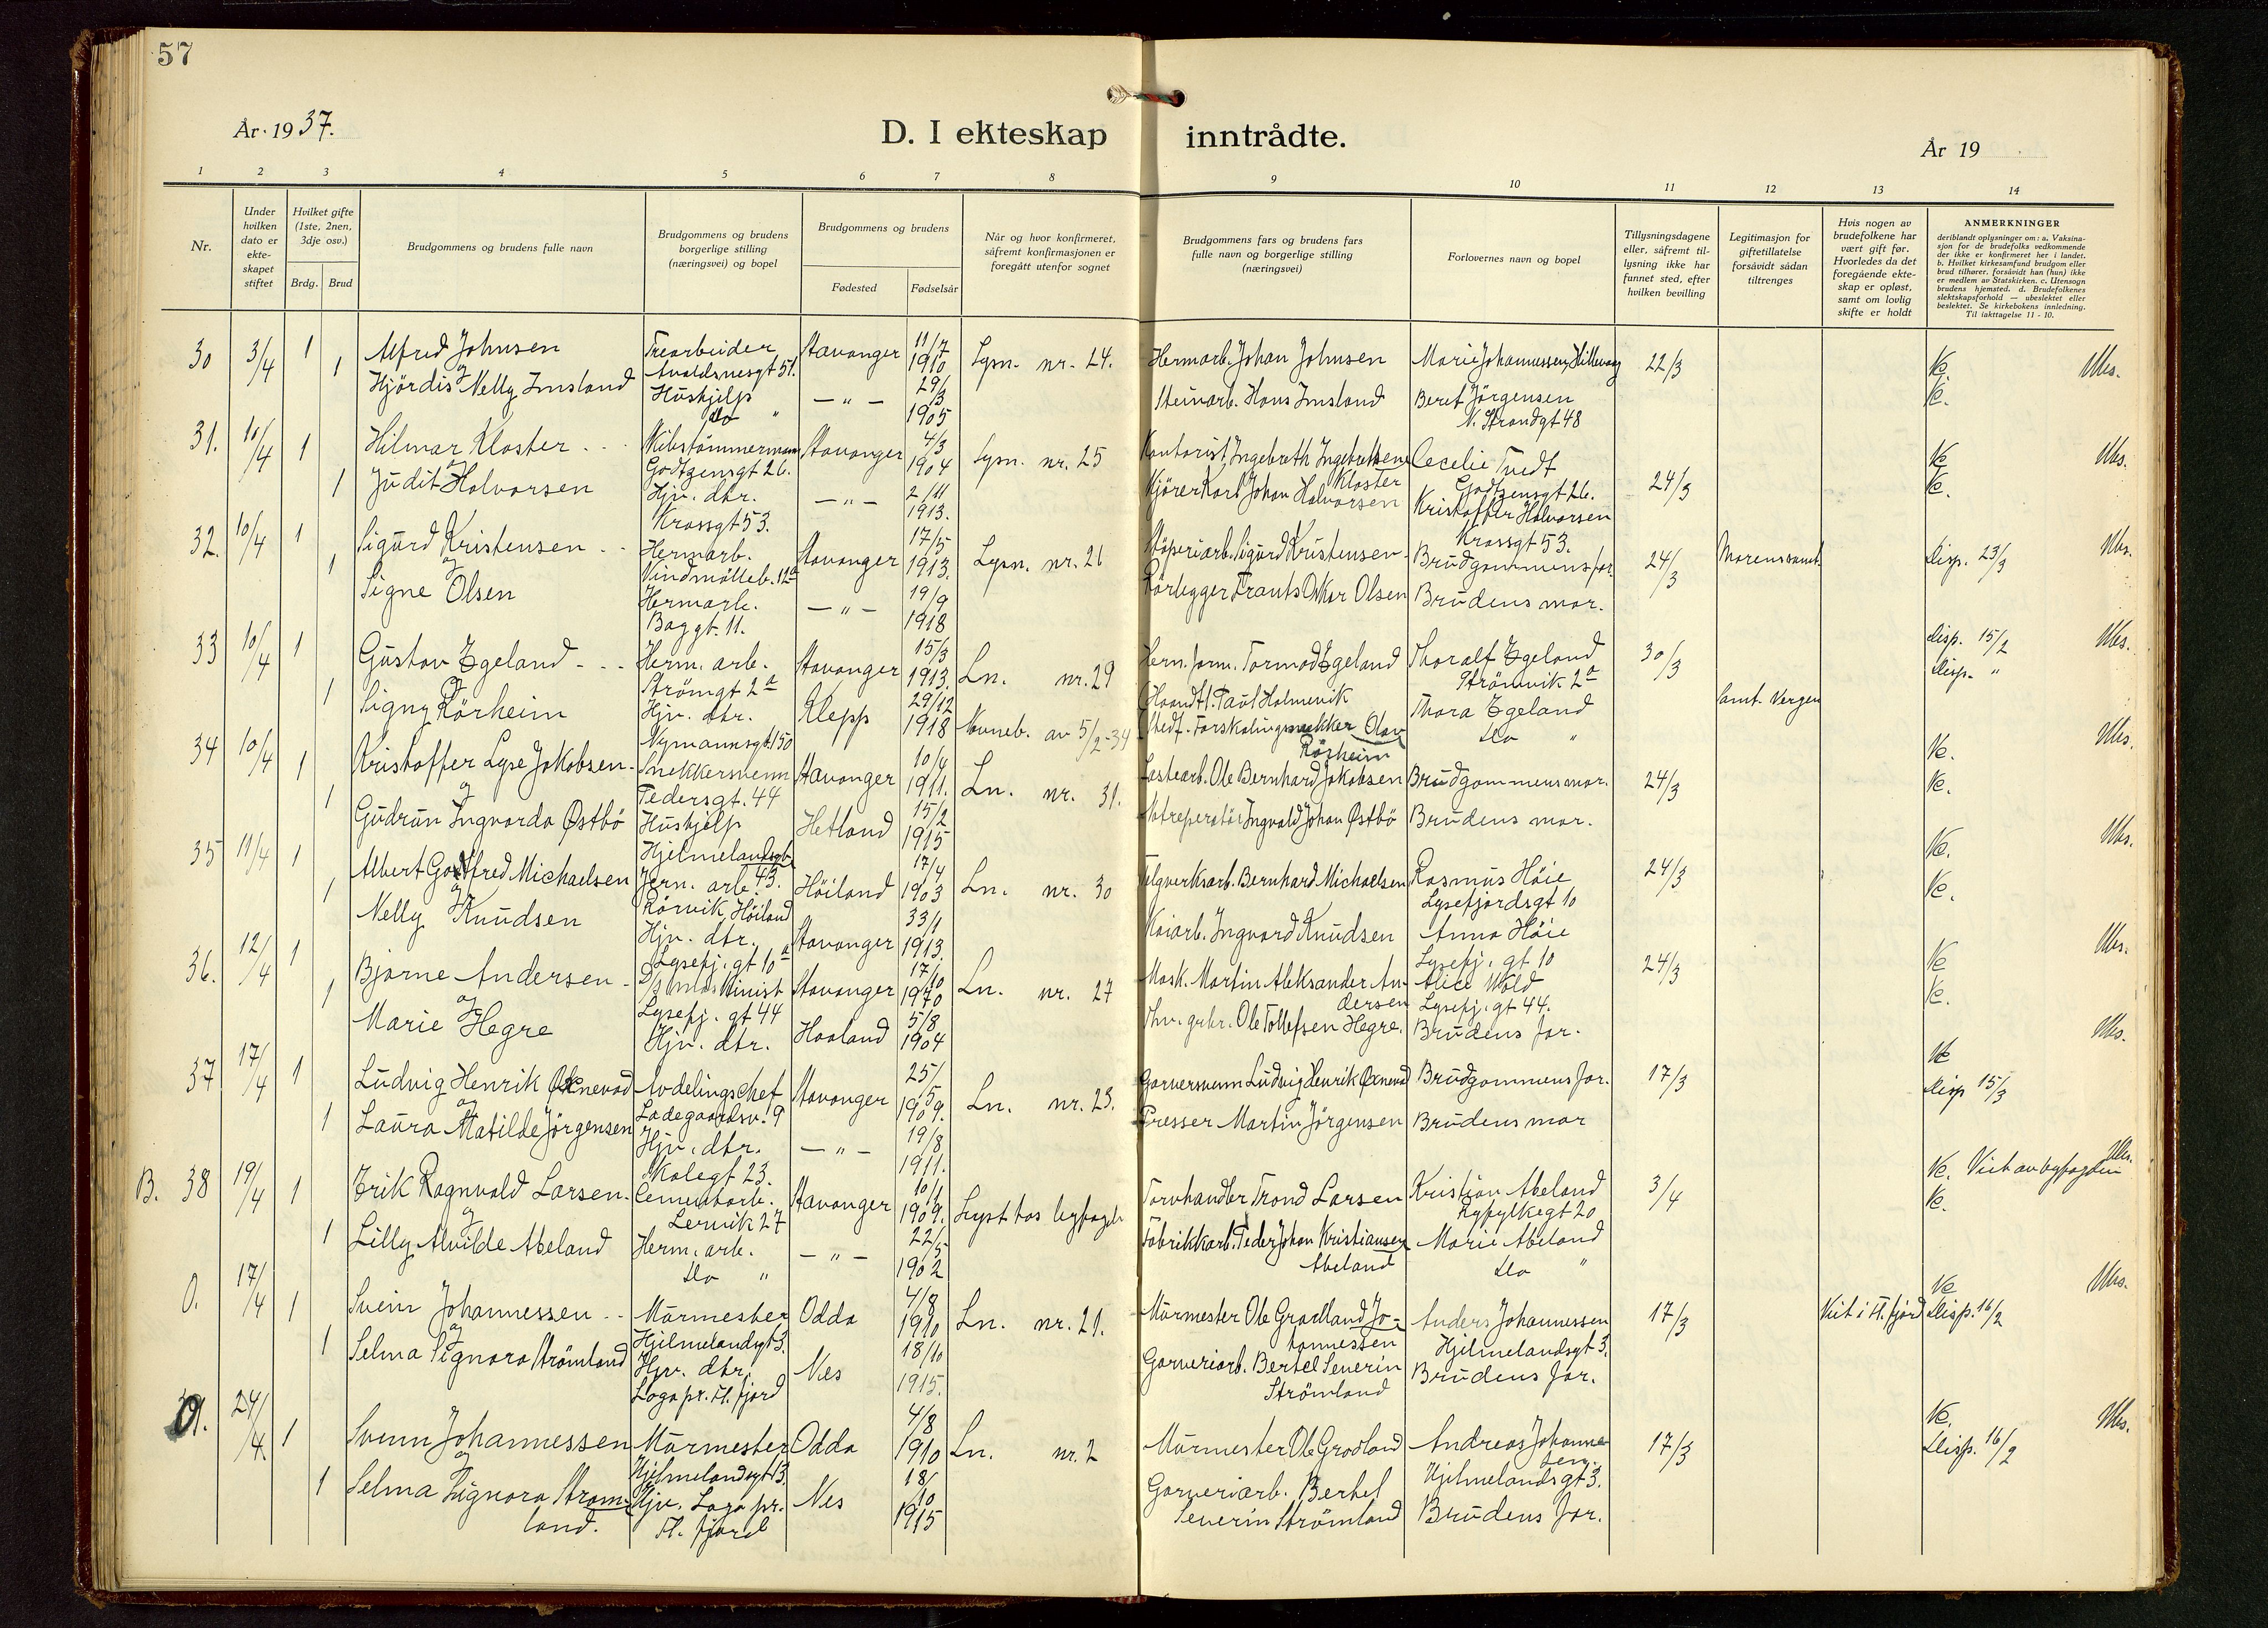 57
År 1937.
D. I ekteskap inntrådte.
År 19
1 2 3 4 5 6 7 8 9 10 11 12 13 14
Nr.
Under hvilken dato er ekteskapet stiftet
Hvilket gifte (1ste, 2nen, 3dje osv.)
Brdg. Brud
Brudgommens og brudens fulle navn
Brudgommens og brudens borgerlige stilling (næringsvei) og bopel
Brudgommens og brudens
Fødested
Fødselsår
Når og hvor konfirmeret, såfremt konfirmasjonen er foregått utenfor sognet
Brudgommens fars og brudens fars fulle navn og borgerlige stilling (næringsvei)
Forlovernes navn og bopel
Tillysningsdagene eller, såfremt tillysning ikke har funnet sted, efter hvilken bevilling
Legitimasjon for giftetillatelse forsåvidt sådan tiltrenges
Hvis nogen av brudefolkene har vært gift før. Hvorledes da det foregående ekteskap er opløst, samt om lovlig skifte er holdt
ANMERKNINGER
deriblandt oplysninger om: a. Vaksinasjon for de brudefolks vedkommende der ikke er konfirmeret her i landet. b. Hvilket kirkesamfund brudgom eller brud tilhører, forsåvidt han (hun) ikke er medlem av Statskirken. c. Utensogn brudens hjemsted. d. Brudefolkenes slektskapsforhold — ubeslektet eller beslektet. Se kirkebokens innledning. Til iakttagelse 11 - 10.
30 3/4 1 Alfred Johnsen Trearbeider Avaldsnesgt 51. Stavanger 11/7 1910 Lysn. nr. 24. Hermarb. Johan Johnsen Marie Johannessen, Hillevaag 22/3 Ve. Ubs.
og
1 Hjördis Nelly Imsland Hushjelp do " — " — 29/3 1905 Steinarb. Hans Imsland Beret Jörgensen N. Strandgt 48 Ve.
31. 10/4 1 Hilmar Kloster Skibstömmermann Godtzensgt 26. Stavanger 4/3 1904 Lysn. nr. 25 Kontorist Ingebreth Ingebrethsen Kloster Cecelie Tvedt Godtzensgt 26. 24/3 Ve Ubs.
og
1 Judit Halvorsen Hjv. dtr. Krossgt 53. — " — 2/11 1913. Kjörer Karl Johan Halvorsen Kristoffer Halvorsen Krossgt 53. Ve.
32. 10/4 1 Sigurd Kristensen Hermarb. Vindmölleb. 12a Stavanger 17/5 1913. Lysn. nr. 26 Stöperiarb. Sigurd Kristensen Brudgommens far. 24/3 Morens samt. Disp. 23/3 Ubs.
og
1 Signe Olsen Hermarb. Baggt. 11. — " — 19/9 1918 Rörlegger Frants Oskar Olsen Brudens mor.
33 10/4 1 Gustav Egeland Herm. arb. Strömgt 2a Stavanger 15/3 1913. Ln. nr. 29 Herm. form. Tormod Egeland Thoralf Egeland Strömvik 2a 30/3 Disp. 15/2 Ubs.
og
1 Signy Rörheim Hjv. dtr. Nymannsgt. 150 Klepp 29/12 1918 Navneb. av 5/2-34 Paul Holmevik Olav Rörheim Thora Egeland do " Samt. Vergen Disp. "
34 10/4 1 Kristoffer Lyse Jakobsen Snekkersvenn Pedersgt. 44 Stavanger 10/4 1911. Ln. nr. 31. Lastearb. Ole Bernhard Jakobsen Brudgommens mor. 24/3 Ve. Ubs.
og
1 Gudrun Ingvarda Østbö Hushjelp Hjelmelandsgt. 43. Hetland 15/2 1915 Ingvald Johan Østbö Brudens mor. Ve.
35 11/4 1 Albert Gottfred Michaelsen Jern. arb. Rörvik, Höiland Höiland 17/4 1903 Ln. nr. 30 Bernhard Michaelsen Rasmus Höie Lysefjordsgt 10 24/3 Ve. Ubs.
og
1 Nelly Knudsen Hjv. dtr. Lysefj. gt 10a Stavanger 33/1 1913. Kaiarb. Ingvard Knudsen Anna Höie Lysefj. gt 10 Ve.
36. 12/4 1 Bjarne Andersen D/s maskinist Lysefj. gt 44 Stavanger 17/10 1970 Ln. nr. 27 Mask. Martin Aleksander Andersen Alice Wold Lysefj. gt 44. 24/3 Ve Ubs.
og
1 Marie Hegre Hjv. dtr. Haaland 5/8 1904 Ole Tollefsen Hegre. Brudens far. Ve.
37 17/4 1 Ludvig Henrik Øxnevad Avdelingschef Ladegaardsv. 9 Stavanger 25/5 1909. Ln. nr. 23. Garversvenn Ludvig Henrik Øxnevad Brudgommens far. 17/3 Ve Ubs.
og
1 Laura Matilde Jörgensen Hjv. dtr. Skolegt 23. — " — 19/8 1911. Presser Martin Jörgensen Brudens mor Disp 15/3
B. 38 19/4 1 Erik Ragnvald Larsen Cementarb. Lervik 27 Stavanger 10/1 1909. Lyst hos byfogden Torvhandler Trond Larsen Kristian Abeland Ryfylkegt 20 3/4 Ve. Viet av byfogden Ubs.
og
1 Lilly Alvilde Abeland Herm. arb. do " — " — 22/5 1902 Fabrikkarb. Peder Johan Kristiansen Abeland Marie Abeland do " Ve.
O. 17/4 1 Svein Johannessen Murmester Hjelmelandsgt 3. Odda 4/8 1910 Ln. nr. 21. Murmester Ole Grodland Johannessen Anders Johannessen Hjelmelandsgt 3. 17/3 Viet i Fl. fjord Ve Ubs.
og
1 Selma Signora Strömland Hjv. dtr. Loga pr. Fl. fjord Nes 18/10 1915. Garveriarb. Bertel Severin Strömland Brudens far. Disp. 16/2
O. 24/4. 1 Svenn Johannessen Murmester Hjelmelandsgt 3. Odda 4/8 1910 Ln. nr. 2 Murmester Ole Grodland Andreas Johannesen. Hjelmelandsgt 3. 17/3 Ve. Ubs.
og
1 Selma Signora Stromland. Hjv. Loga pr. Fl. fjord Nes 18/10 1915 Garveriarb. Bertel Severin Strömland Brudens far. Disp. 16/2